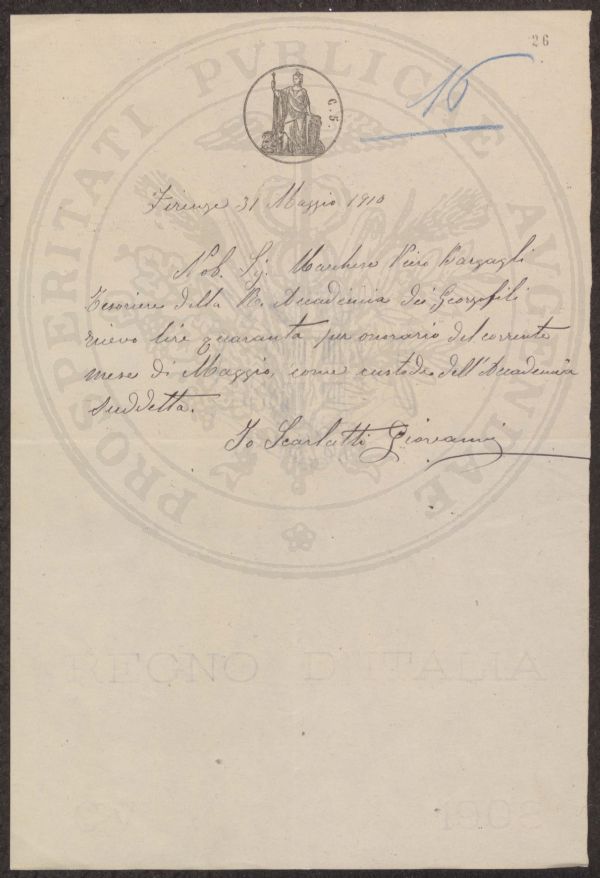 26
16
C. 5.
PROSPERITATI PVBLICAE AVGENDAE
Firenze 31 Maggio 1910
Nob. Sig. Marchese Piero Bargagli
Tesoriere della R. Accademia dei Georgofili
ricevo lire quaranta per onorario del corrente
mese di Maggio, come custode dell'Accademia
suddetta.
Io Scarlatti Giovanni
REGNO D'ITALIA
1908